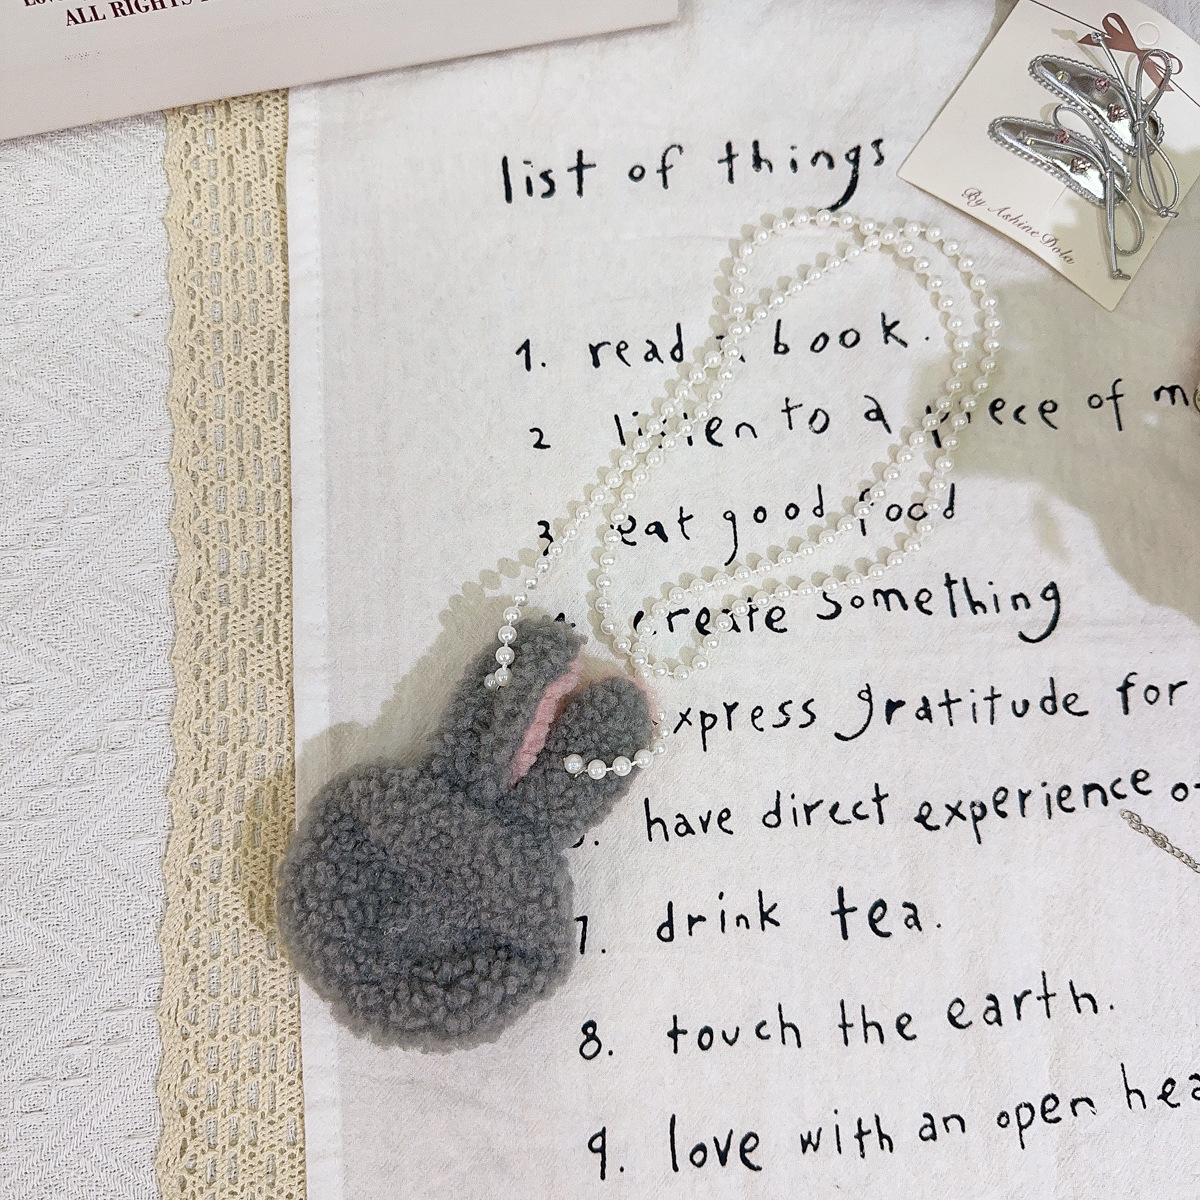 ALL RIGHTS
list of things
By Ashine Dola
1. read book.
2 listen to a piece of
3 eat good food
create something
express gratitude for
have direct experience
7. drink tea.
8. touch the earth.
9. love with an open